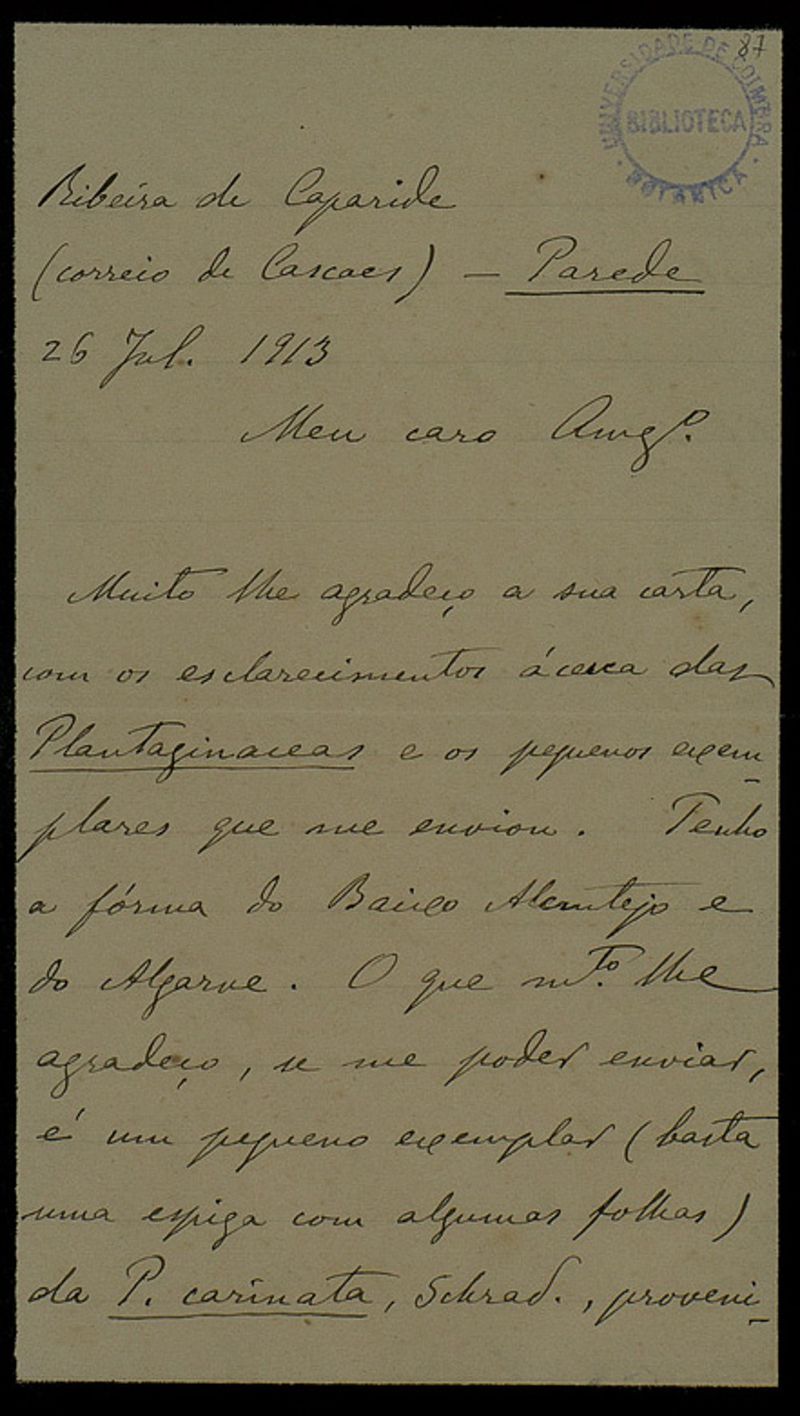 87
UNIVERSIDADE DE COIMBRA
BIBLIOTECA
BOTANICA
Ribeira de Caparide
(correio de Cascaes) — Parede
26 Jul. 1913
Meu caro Amgº.
Muito lhe agradeço a sua carta,
com os esclarecimentos ácerca das
Plantaginaceas e os pequenos exem-
plares que me enviou. Tenho
a fórma do Baixo Alemtejo e
do Algarve. O que mto. lhe
agradeço, se me poder enviar,
é um pequeno exemplar (basta
uma espiga com algumas folhas)
da P. carinata, Schrad., proveni-